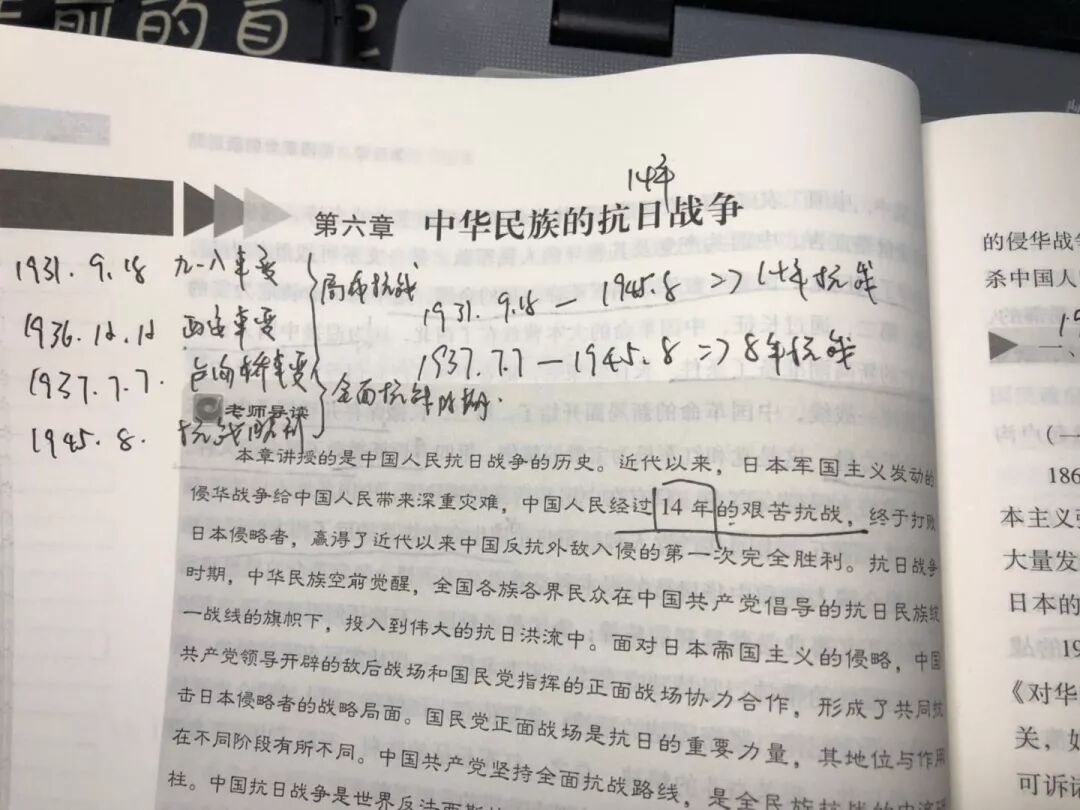 前的自
14年
第六章 中华民族的抗日战争
1931.9.18 九一八事变
1936.12.12 西安事变
1937.7.7. 卢沟桥事变
1945.8. 抗战胜利
局部抗战
全面抗战时期.
1931.9.18 — 1945.8 => 14年抗战
1937.7.7 — 1945.8 => 8年抗战
老师导读
本章讲授的是中国人民抗日战争的历史。近代以来,日本军国主义发动的
侵华战争给中国人民带来深重灾难,中国人民经过14年的艰苦抗战,终于打败
日本侵略者,赢得了近代以来中国反抗外敌入侵的第一次完全胜利。抗日战争
时期,中华民族空前觉醒,全国各族各界民众在中国共产党倡导的抗日民族统
一战线的旗帜下,投入到伟大的抗日洪流中。面对日本帝国主义的侵略,中国
共产党领导开辟的敌后战场和国民党指挥的正面战场协力合作,形成了共同抗
击日本侵略者的战略局面。国民党正面战场是抗日的重要力量,其地位与作用
在不同阶段有所不同。中国共产党坚持全面抗战路线,是全民族抗战的中流砥
柱。中国抗日战争是世界反法西斯
的侵华战争
杀中国人
一、
186
本主义
大量发
日本的
19
《对华
关,如
可诉